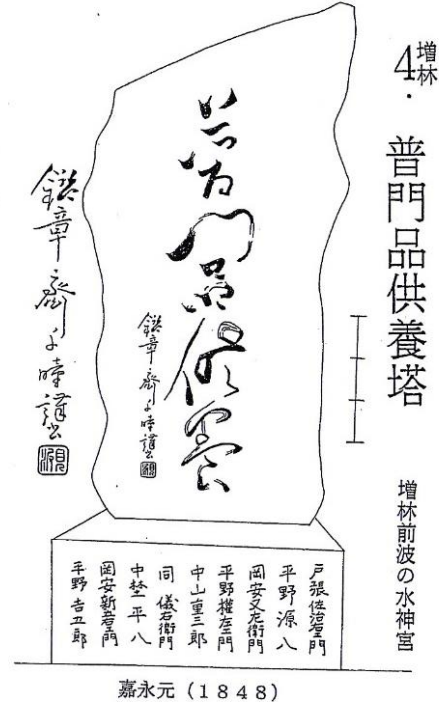 増林
4. 普門品供養塔
増林前波の水神宮
普門品供養
章齋 謹書
章齋 謹書
戸張佐治右衛門
平野源八
岡安又左衛門
平野権左衛門
中山重三郎
同 儀右衛門
中埜平八
岡安新右衛門
平野吉五郎
嘉永元(1848)